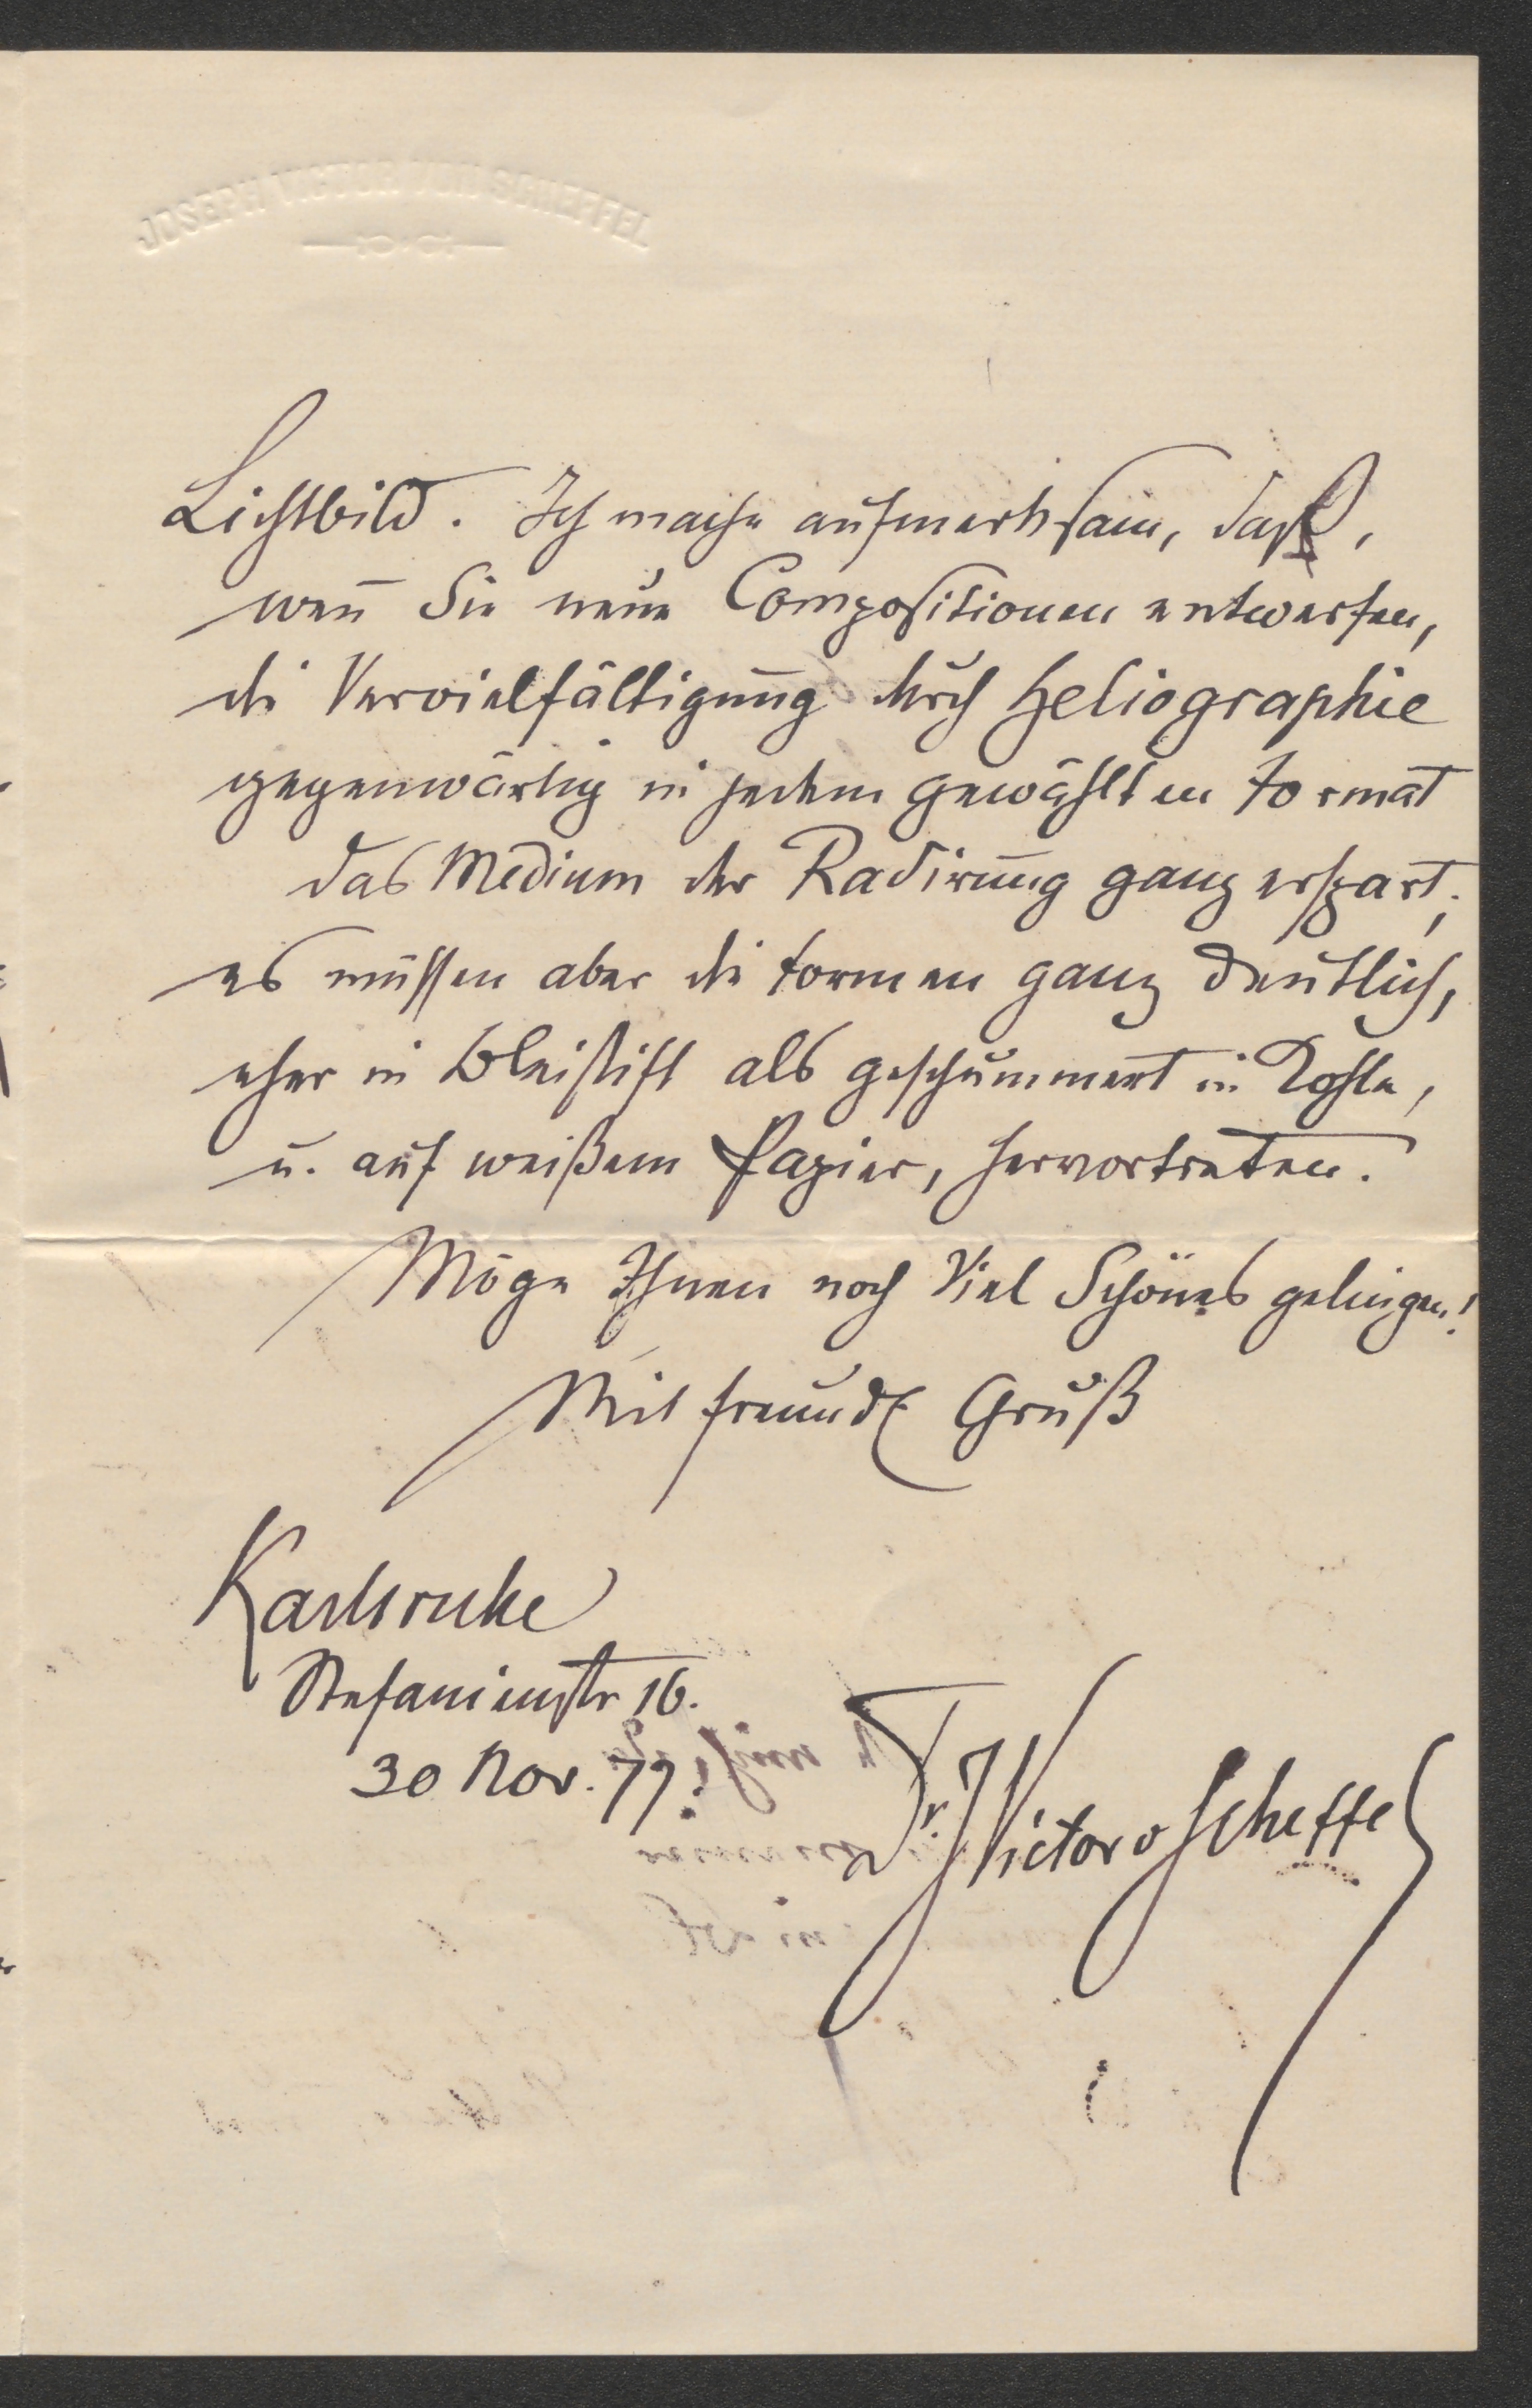 JOSEPH VICTOR VON SCHEFFEL
Lichtbild. Ich mache aufmerksam, daß,
wen̄ Sie neue Compositionen entwerfen,
die Vervielfältigung durch Heliographie
gegenwärtig in jedem gewählten Format
das Medium der Radirung ganz erspart;
es müssen aber die Formen ganz deutlich,
eher in Bleistift als geschummert in Kohle,
u. auf weißem Papier, hervortreten.
Möge Ihnen noch Viel Schönes gelingen!
Mit freundl Gruß
Karlsruhe
Stefanienstr 16.
30 Nov. 77.
Dr. J Victor v Scheffel